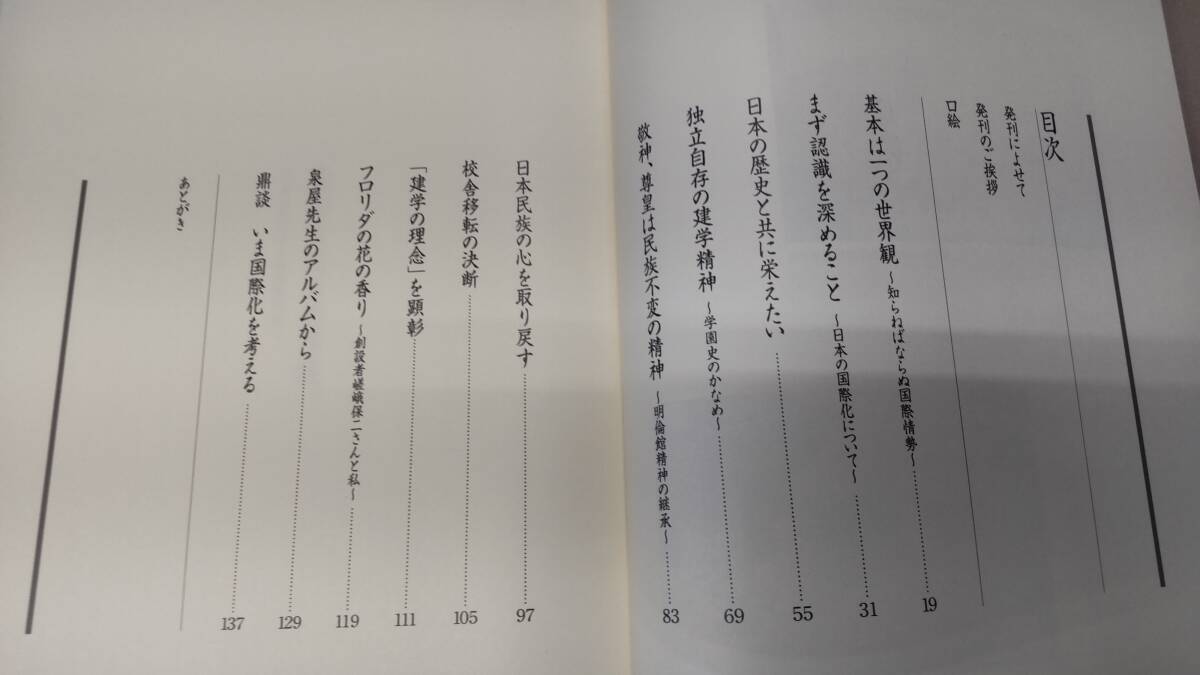 目次
発刊によせて
発刊のご挨拶
口絵
基本は一つの世界観 ～知らねばならぬ国際情勢～ 19
まず認識を深めること ～日本の国際化について～ 31
日本の歴史と共に栄えたい 55
独立自存の建学精神 ～学園史のかなめ～ 69
敬神、尊皇は民族不変の精神 ～明倫館精神の継承～ 83
日本民族の心を取り戻す 97
校舎移転の決断 105
「建学の理念」を顕彰 111
フロリダの花の香り ～創設者嵯峨保二さんと私～ 119
泉屋先生のアルバムから 129
鼎談 いま国際化を考える 137
あとがき